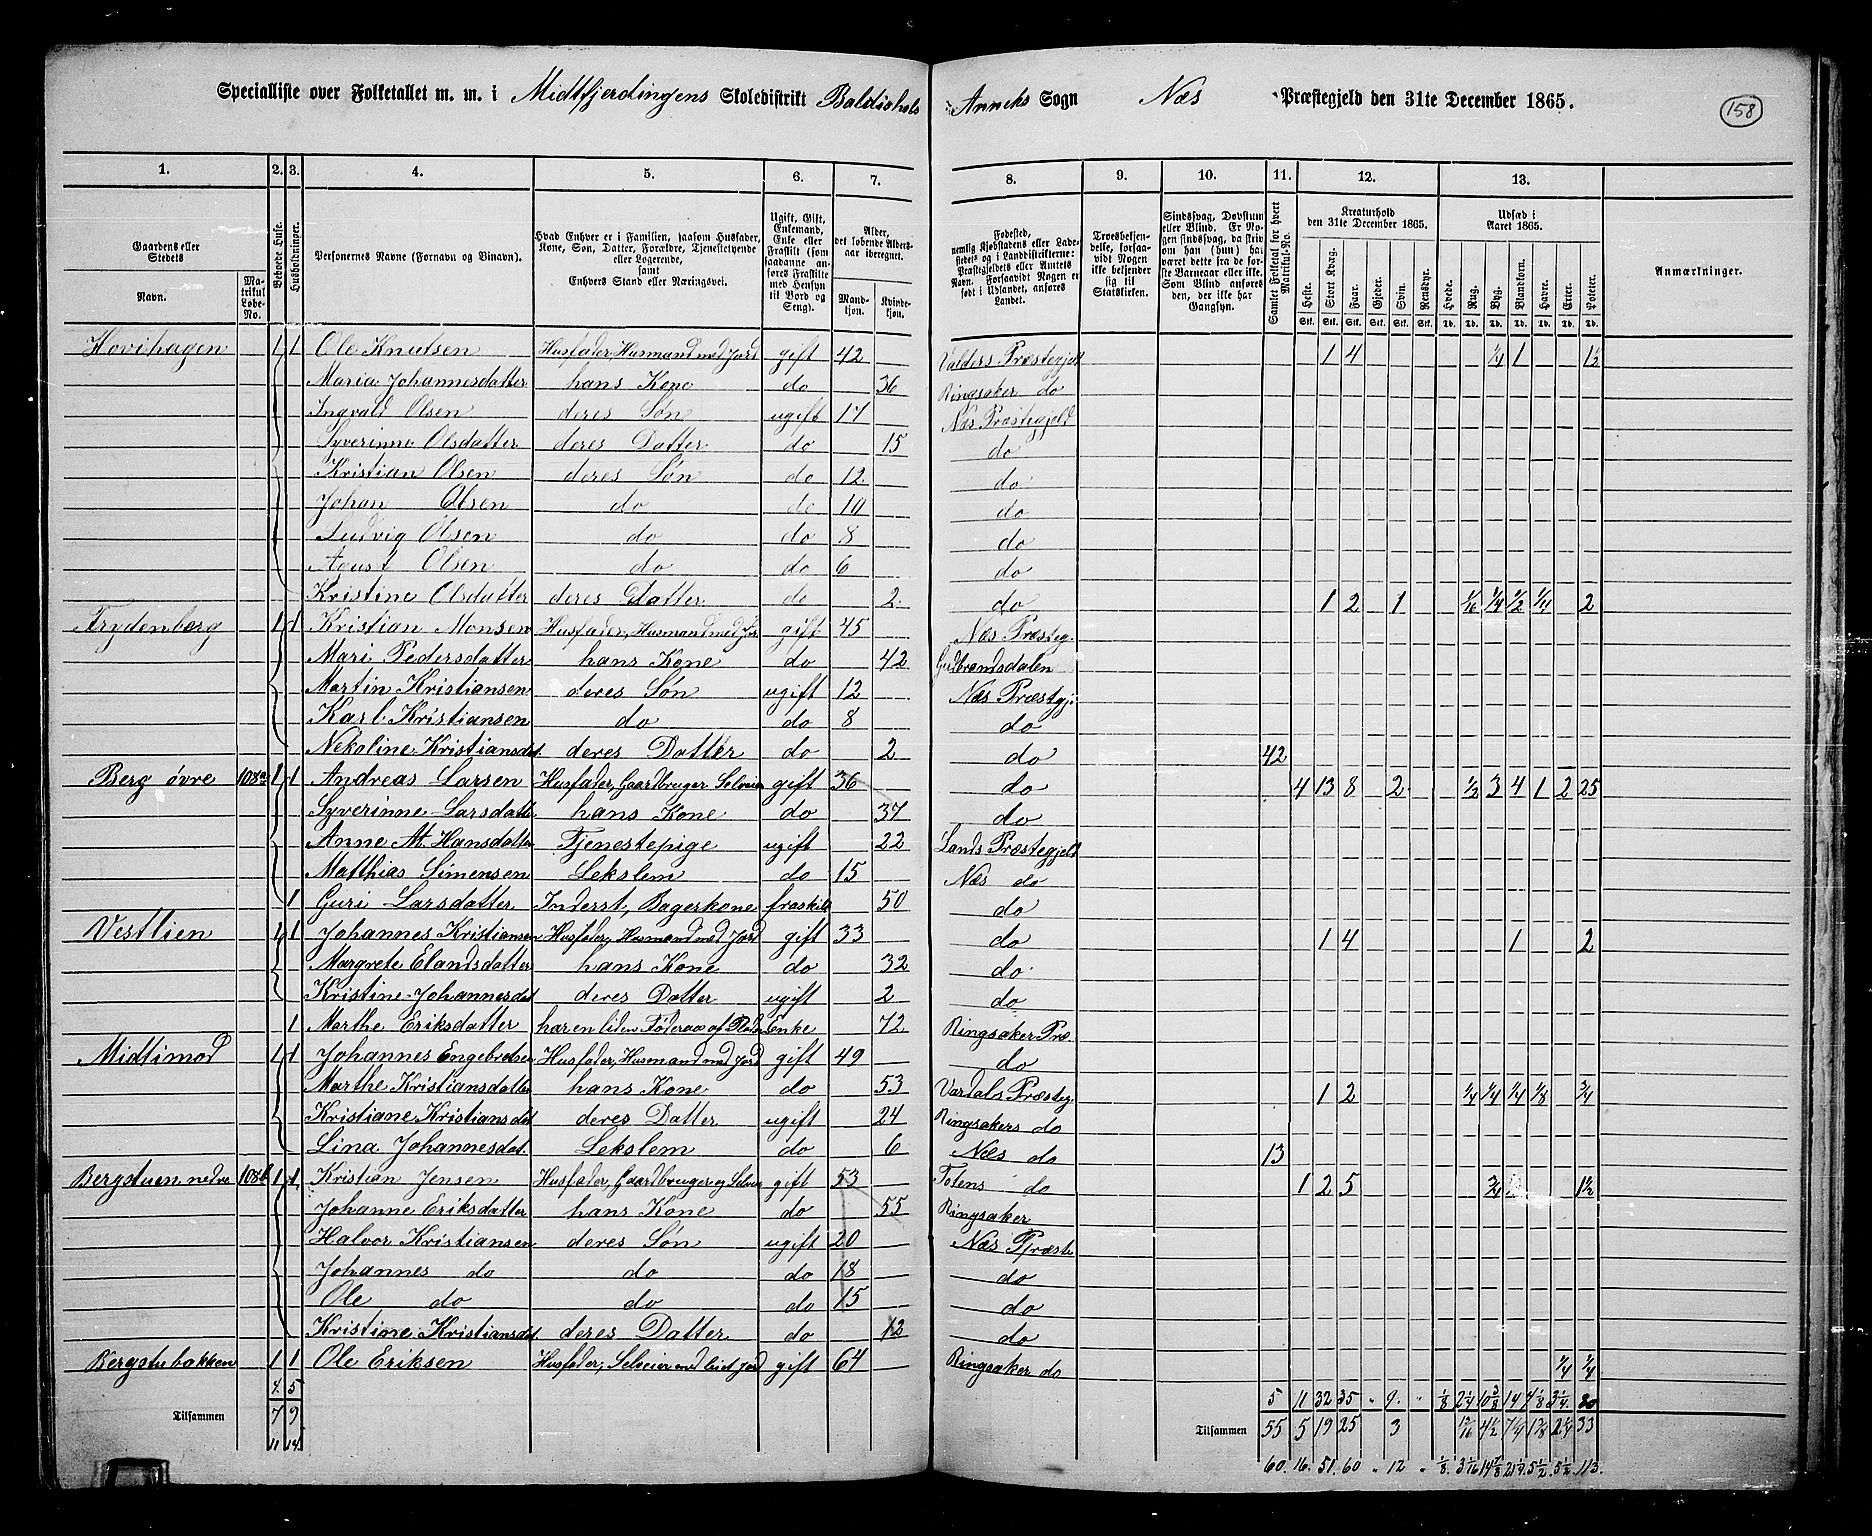 Specialliste over Folketallet m. m. i Midtfjerdingens Skoledistrikt Baldishols Anneks Sogn Næs Præstegjeld den 31te December 1865. 158
1. 2. 3. 4. 5. 6. 7. 8. 9. 10. 11. 12. 13.
Gaardens eller Stedets Navn. Matrikul Løbe-No. Beboede Huse. Husholdninger. Personernes Navne (Fornavn og Tilnavn). Hvad Enhver er i Familien, saasom Husfader, Kone, Søn, Datter, Forældre, Tjenestetyende eller Logerende, samt Enhvers Stand eller Næringsvei. Ugift, Gift, Enkemand, Enke eller Fraskilt (som saadanne anføres Fraskilte med Hensyn til Bord og Seng). Alder, det løbende Alders-aar iberegnet. Mandkjøn. Kvindekjøn. Fødested, nemlig Kjøbstadens eller Ladestedets og i Landdistrikterne: Præstegjeldets eller Amtets Navn. Forsaavidt Nogen er født i Udlandet, anføres Landet. Troesbekjendelse, forsaavidt Nogen ikke bekjender sig til Statskirken. Sindssvag, Døvstum eller Blind. Er Nogen sindssvag, da skrives om han (hun) har været dette fra de første Barneaar eller ikke. Som Blind anføres den, der ikke har Gangsyn. Samlet Folketal for hvert Matrikuls-No. Kreaturhold den 31te December 1865. Udsæd i Aaret 1865. Anmærkninger.
Heste. Stort Kvæg. Faar. Gjeder. Svin. Rensdyr. Hvede. Rug. Byg. Blandkorn. Havre. Erter. Poteter.
Stk. Stk. Stk. Stk. Stk. Stk. Td. Td. Td. Td. Td. Td. Td.
Hovihagen 1 1 Ole Knutsen Husfader, Husmand med Jord gift 42 Valders Præstegjeld 1 4 1/4 1 1 1/2
Maria Johannesdatter hans Kone do 36 Ringsaker do
Ingvald Olsen deres Søn ugift 17 Næs Præstegjeld
Syverinne Olsdatter deres Datter do 15 do
Kristian Olsen deres Søn do 12 do
Johan Olsen do do 10 do
Ludvig Olsen do do 8 do
August Olsen do do 6 do
Kristine Olsdatter deres Datter do 2 do 1 2 1 1/16 1/4 1/2 1/4 2
Frydenberg 1 1 Kristian Monsen Husfader, Husmand med Jor gift 45 Næs Præsteg.
Mari Pedersdatter hans Kone do 42 Gudbrandsdalen
Martin Kristiansen deres Søn ugift 12 Næs Præstgj.
Karl Kristiansen do do 8 do
Nekoline Kristiansdat. deres Datter do 2 do 42
Berg øvre 108a 1 1 Andreas Larsen Husfader, Gaardbruger Selveier gift 36 do 4 13 8 2 1/2 3 4 1 2 25
Syverinne Larsdatt. hans Kone do 37 do
Anne M. Hansdatter Tjenestepige ugift 22 Lands Præstegjeld
Matthias Simensen Lekslem do 15 Næs do
1 Guri Larsdatter Inderst, Bagerkone fraskilt 50 do
Vestlien 1 1 Johannes Kristiansen Husfader, Husmand med Jord gift 33 do 1 4 1 2
Margrete Elandsdatter hans Kone do 32 do
Kristine Johannesdat deres Datter ugift 2 do
1 Marthe Eriksdatter har en liden Føderaad af Pladsen Enke 72 Ringsaker Præ.
Midtimod 1 1 Johannes Engebretsen Husfader, Husmand med Jord gift 49 do
Marthe Kristiansdatter hans Kone do 53 Vardals Præsteg 1 2 1/4 1/4 1/4 1/8 3/4
Kristiane Kristiansdat deres Datter ugift 24 Ringsakers do
Lina Johannesdat. Lekslem do 6 Næs do 13
Bergstuen nedre 108b 1 1 Kristian Jensen Husfader, Gaardbruger og Selveier gift 53 Totens do 1 2 5 3/4 1 1/2
Johanne Eriksdatter hans Kone do 55 Ringsaker
Halvor Kristiansen deres Søn ugift 20 Næs Præste
Johannes do do do 18 do
Ole do do do 15 do
Kristine Kristiansdat. deres Datter do 12 do
Bergstubakken 1 1 Ole Eriksen Husfader, Selveier med lidt Jord gift 64 Ringsaker do 1/4 1/4
4. 5 5 11 32 35 " 9. " 1/8 2 1/4 10 3/8 14 4 1/8 3 1/4 80
Tilsammen 7 9 Tilsammen 55 5 19 25 3 4 1/2 7 1/4 1 3/8 2 1/4 33
11 14. 60. 16. 51. 60 " 12 " 1/8 14 7/8 21 1/4 5 1/2 5 1/2 113.